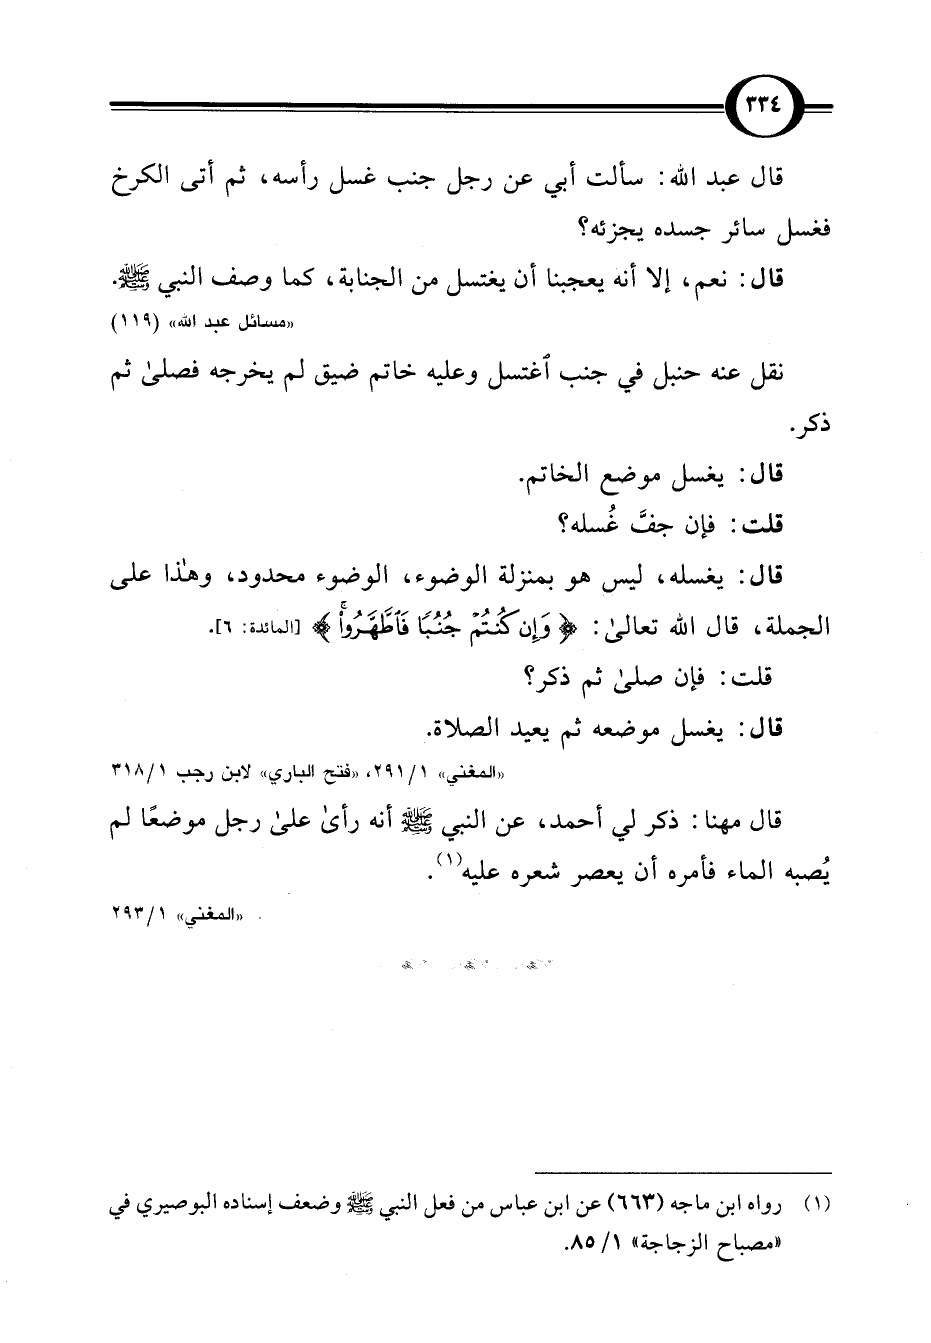 ٣٣٤
قال عبد الله: سألت أبي عن رجل جنب غسل رأسه، ثم أتى الكرخ
فغسل سائر جسده يجزئه؟
قال: نعم، إلا أنه يعجبنا أن يغتسل من الجنابة، كما وصف النبي ﷺ.
«مسائل عبد الله» (١١٩)
نقل عنه حنبل في جنب ٱغتسل وعليه خاتم ضيق لم يخرجه فصلىٰ ثم
ذكر.
قال: يغسل موضع الخاتم.
قلت: فإن جفَّ غُسله؟
قال: يغسله، ليس هو بمنزلة الوضوء، الوضوء محدود، وهٰذا على
الجملة، قال الله تعالىٰ: ﴿وَإِن كُنتُمْ جُنُبًا فَٱطَّهَّرُوا۟ۚ﴾ [المائدة: ٦].
قلت: فإن صلىٰ ثم ذكر؟
قال: يغسل موضعه ثم يعيد الصلاة.
«المغني» ١/ ٢٩١، «فتح الباري» لابن رجب ١/ ٣١٨
قال مهنا: ذكر لي أحمد، عن النبي ﷺ أنه رأىٰ علىٰ رجل موضعًا لم
يُصبه الماء فأمره أن يعصر شعره عليه(١).
«المغني» ١/ ٢٩٣
(١) رواه ابن ماجه (٦٦٣) عن ابن عباس من فعل النبي ﷺ وضعف إسناده البوصيري في
«مصباح الزجاجة» ١/ ٨٥.